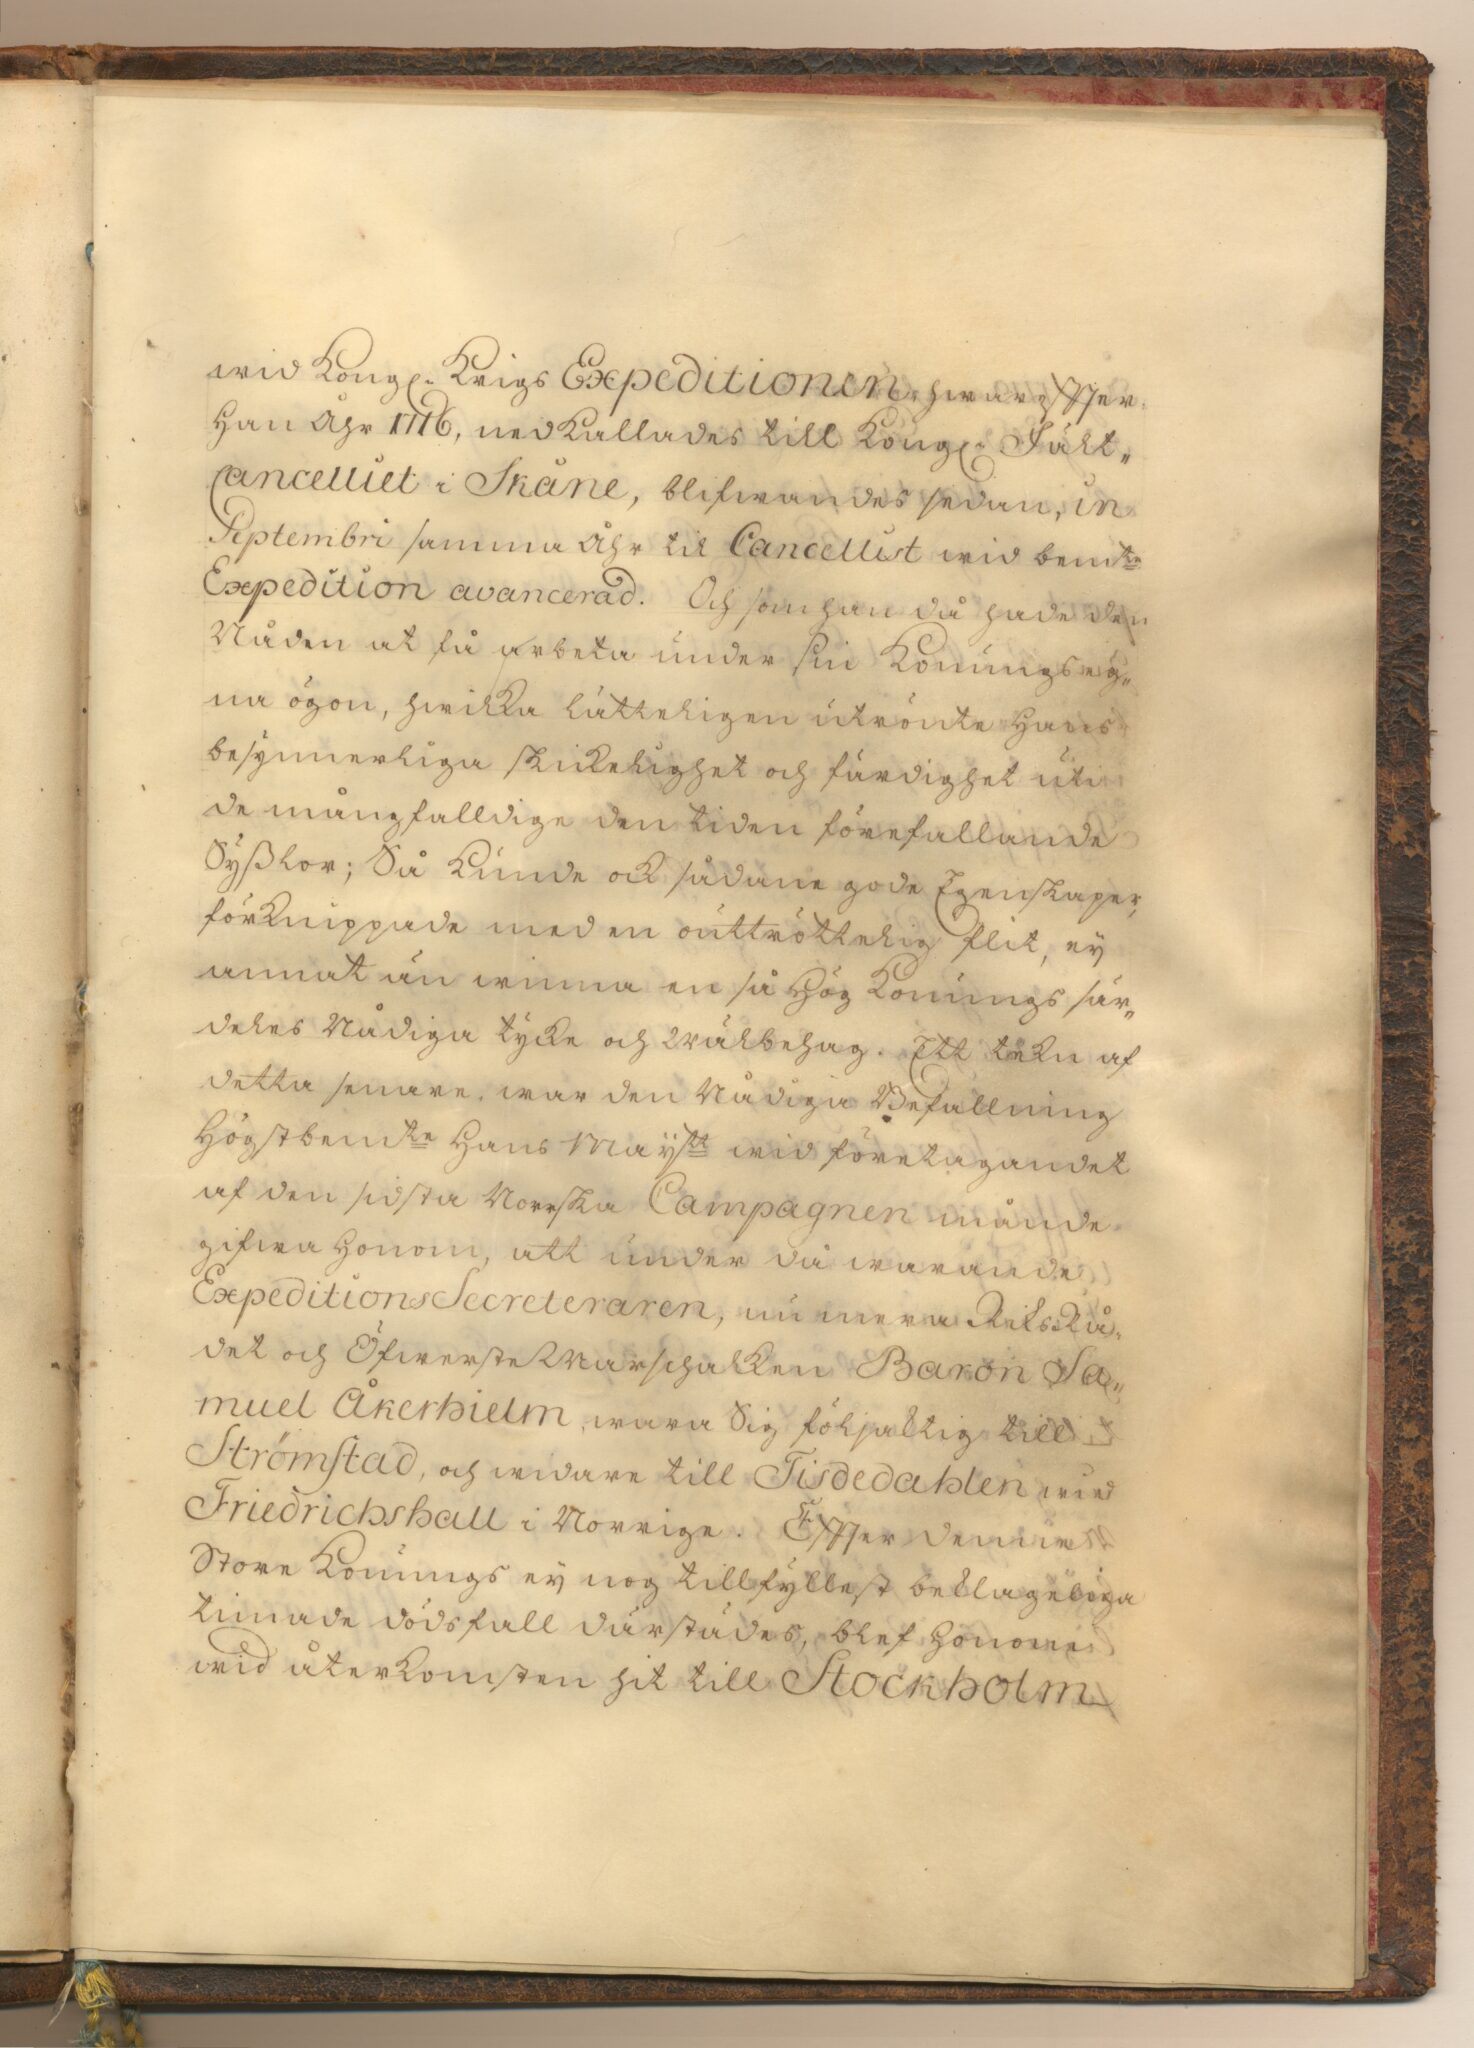 wid Kongl. Krigs Expeditionen, hwarefter
Han Åhr 1716, nedkallades till Kongl. Fält„
Cancelliet i Skåne, blifwandes sedan, in
Septembri samma Åhr til Cancellist wid bemte
Expedition avancerad. Och som han då hade den
Nåden at få arbeta under sin Konungs eg„
na ögon, hwilka lätteligen utrönte Hans
besynnerliga skickelighet och färdighet uti
de mångfalldige den tiden förefallande
Sysslor; Så kunde ock sådane gode Egenskaper,
förknippade med en outtröttelig flit, ey
annat än winna en så Hög Konungs sär„
deles Nådiga tycke och Wälbehag. Ett tekn af
detta senare, war den Nådiga Befallning
Högstbemte Hans Mayst wid företagandet
af den sidsta Norrska Campagnen månde
gifwa Honom, att under då warande
ExpeditionsSecreteraren, nu mera RiksRå„
det och ÖfwersteMarschalken Baron Sa„
muel Åkerhielm, wara Sig följacktig till
Strömstad, och widare till Tisdedahlen wid
Friedrichshall i Norrige. Efter denne
Store Konungs ey nog tillfyllest beklageliga
timade dödsfall därstädes, blef Honom
wid återkomsten hit till Stockholm